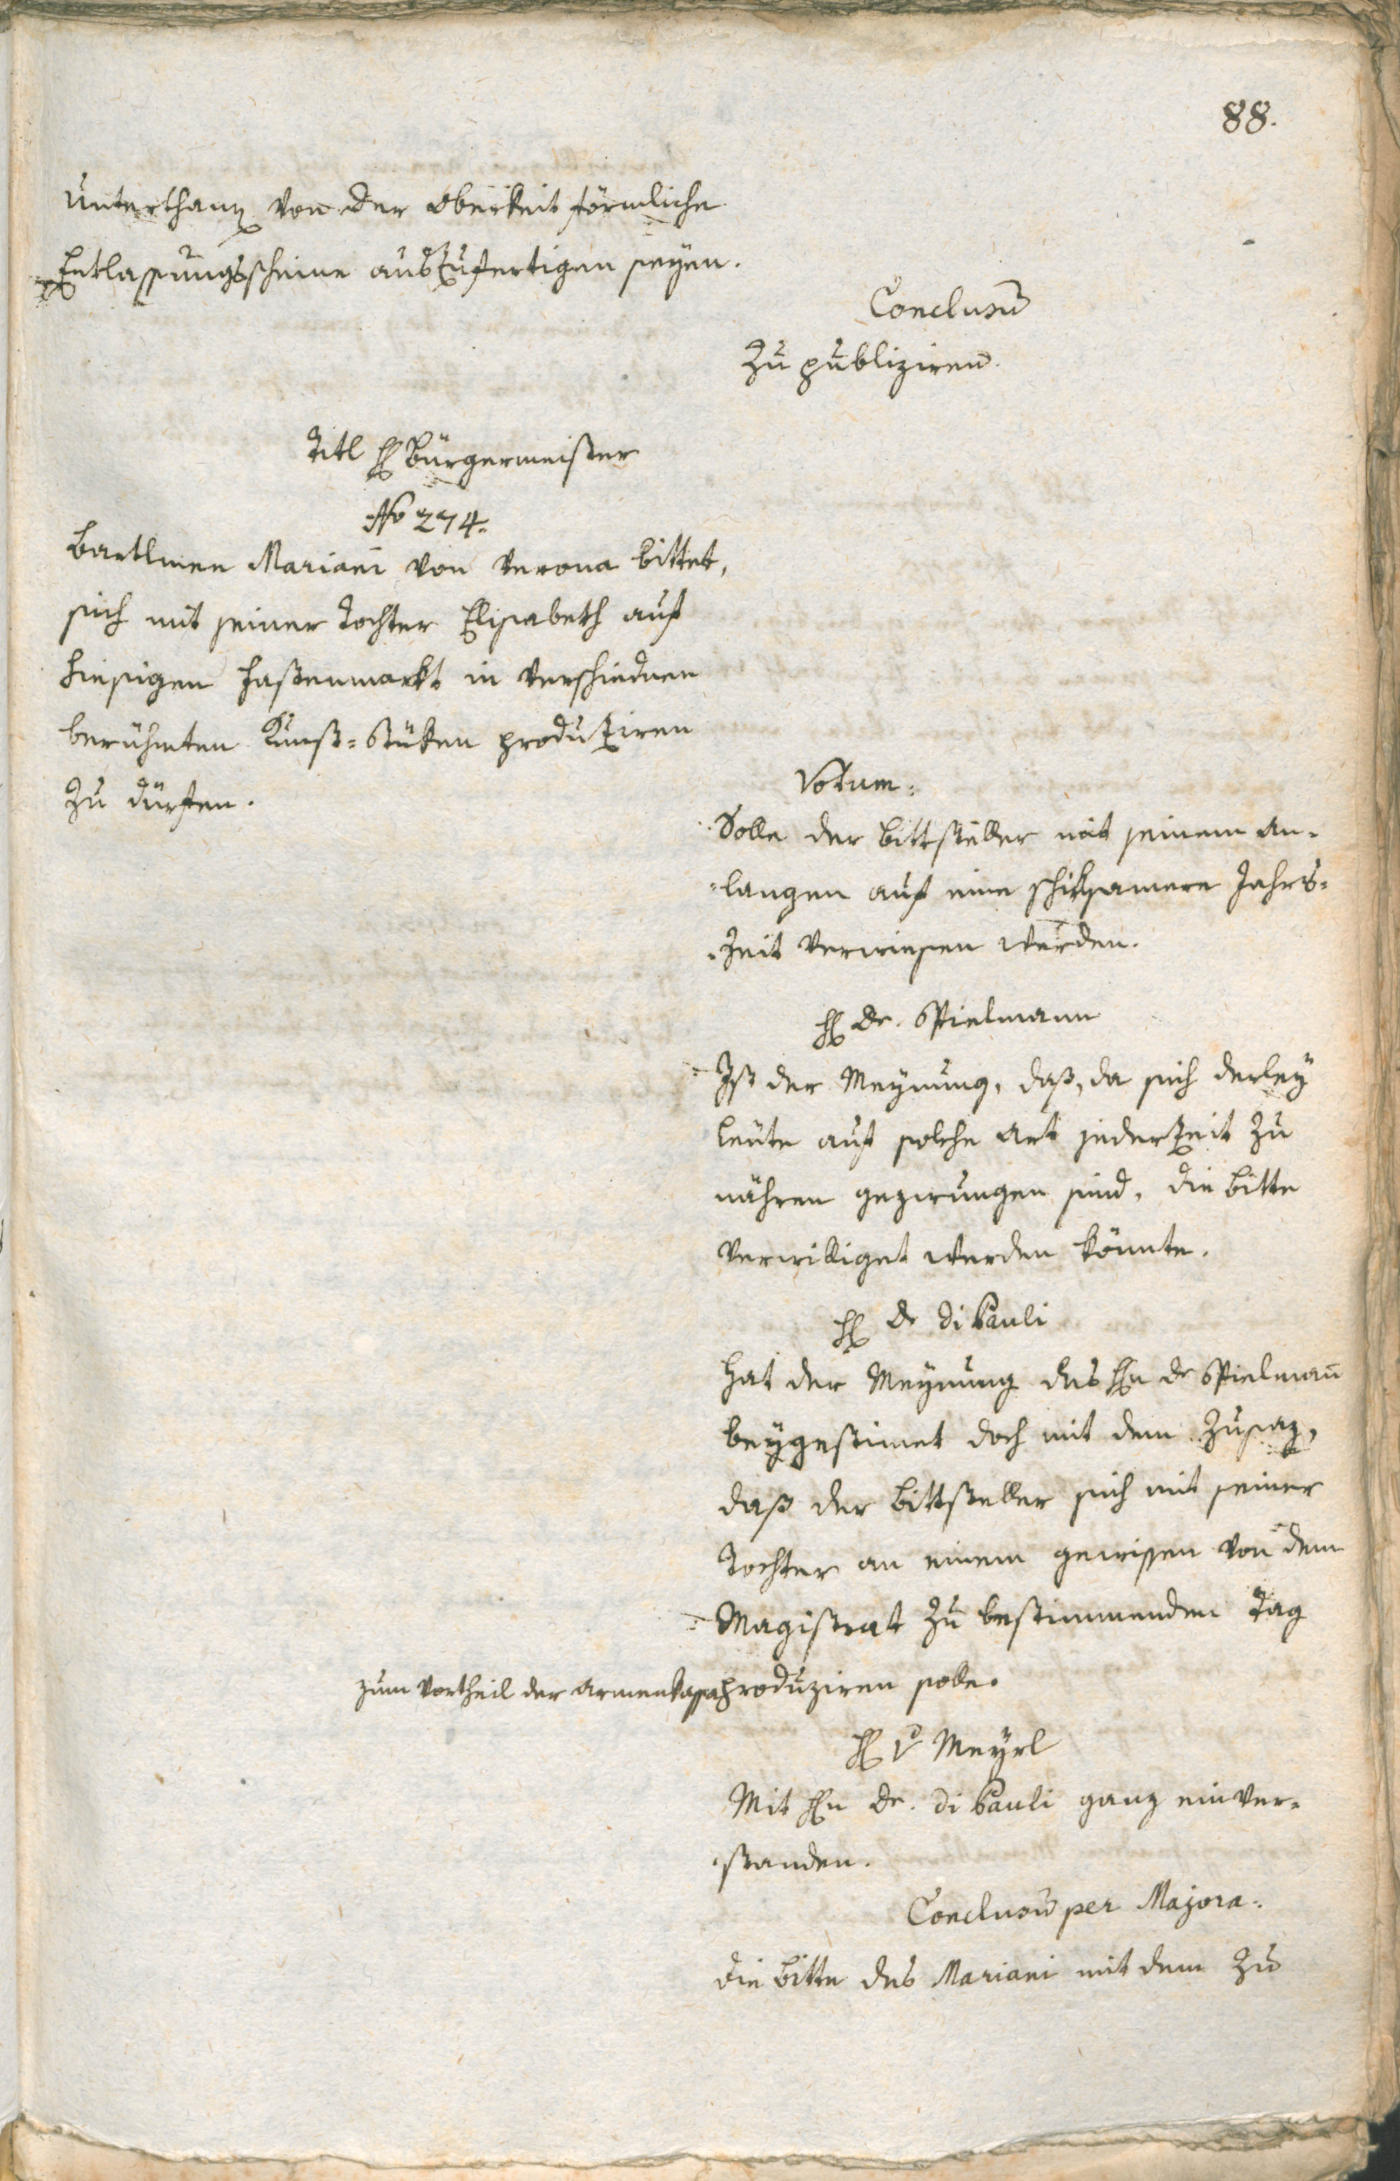 88.
Unterthanen von der Oberkeit förmliche
Entlassungsscheine auszufertigen seyen.
Conclusum
Zu publiziren.
Titl H Bürgermeister
No 274.
Bartlmee Mariani von Verona bittet,
sich mit seiner Tochter Elisabeth auf
hiesigen Fastenmarkt in verschiednen
berühmten Kunst-Stüken produziren
zu dürfen.
Votum:
Solle der Bittsteller mit seinem An-
langen auf eine schiksamere Jahrs-
zeit verwiesen werden.
H Dr. Spielmann
Ist der Meynung, daß, da sich derley
Leute auf solche Art jederzeit zu
nähren gezwungen sind, die Bitte
verwilliget werden könnte.
H Dr di Pauli
Hat der Meynung des Hn Dr Spielmañ
beygestimet doch mit dem Zusaz,
daß der Bittsteller sich mit seiner
Tochter an einem gewissen von dem
Magistrat zu bestimmenden Tag
zum Vortheil der Armenkassa produziren solle.
H v Meyrl
Mit Hn Dr. di Pauli ganz einver-
standen.
Conclusum per Majora:
Die Bitte des Mariani mit dem Zu